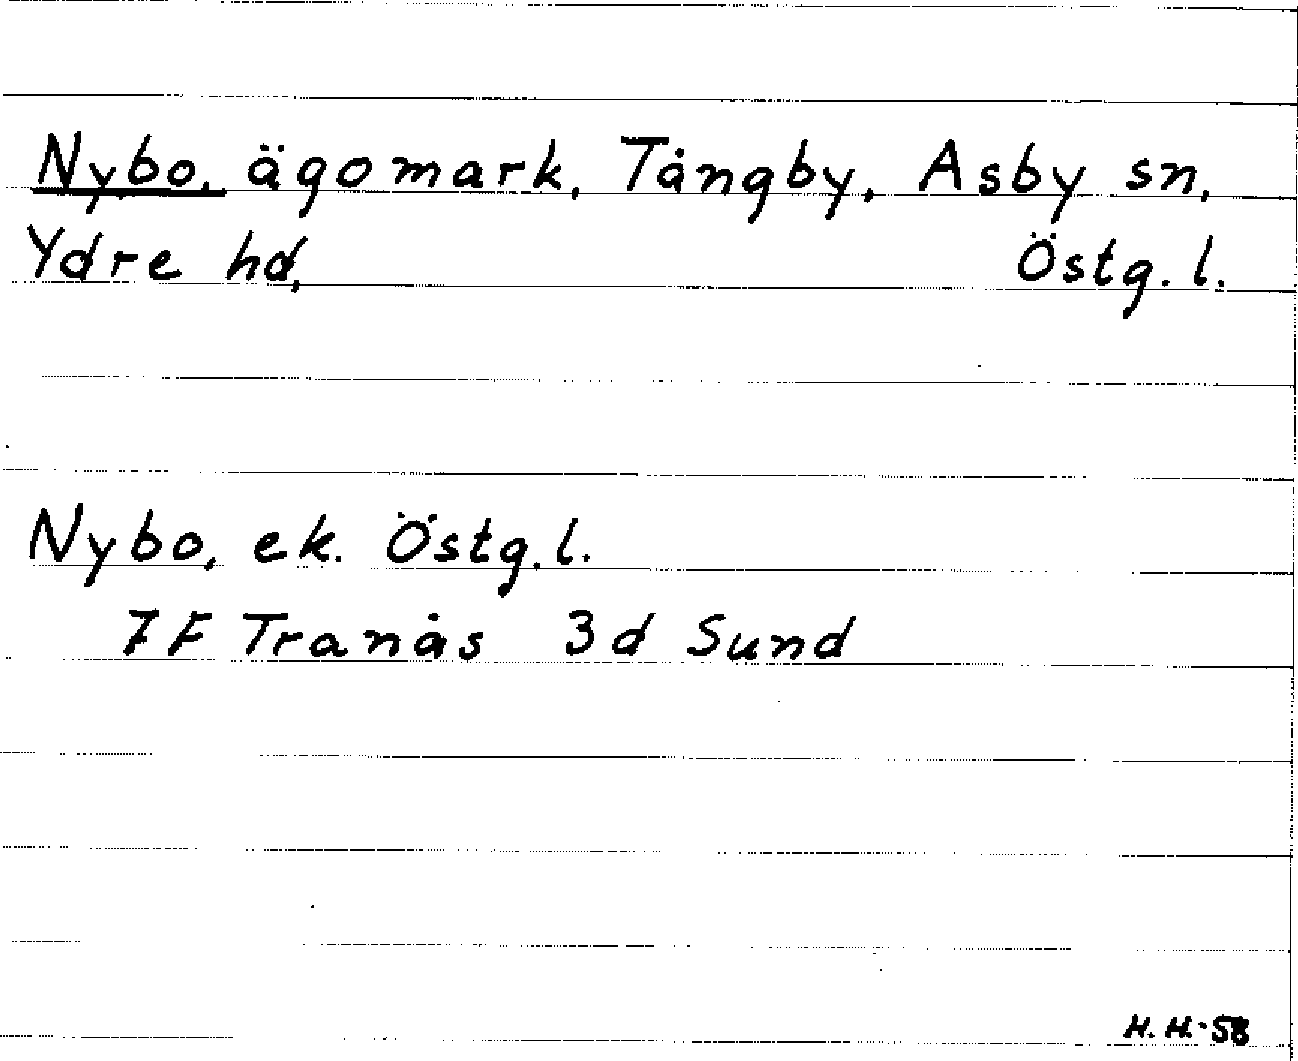 Nybo, ägomark, Tångby, Asby sn,
Ydre hd, Östg. l.
Nybo, ek. Östg. l.
7F Tranås 3d Sund
H. H. -58